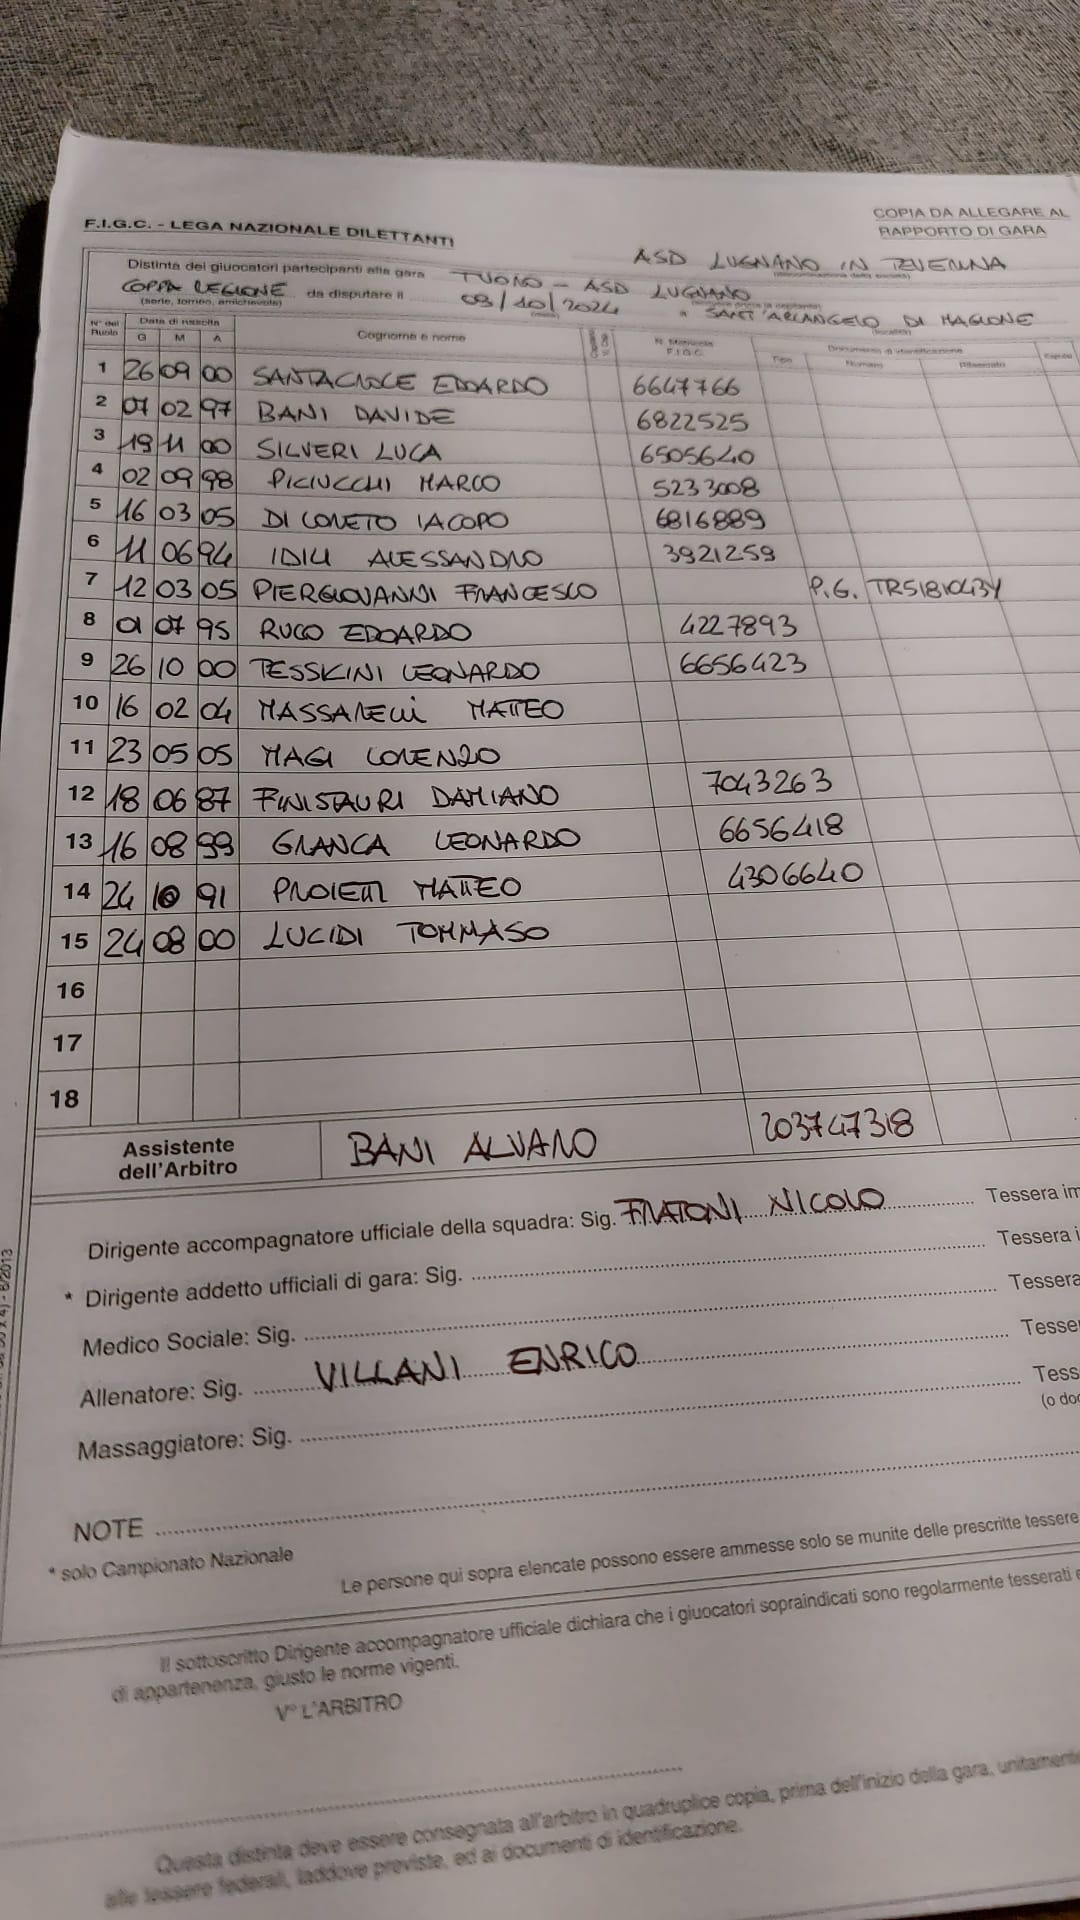 F.I.G.C. - LEGA NAZIONALE DILETTANTI
COPIA DA ALLEGARE AL
RAPPORTO DI GARA
ASD LUGNANO IN TEVERINA
Distinta dei giuocatori partecipanti alla gara TUORO - ASD LUGNANO
COPPA REGIONE da disputare il 08/10/2024 a SANT'ARCANGELO DI MAGIONE
(serie, torneo, amichevole)
N° del Ruolo Data di nascita G M A Cognome e nome N. Matricola F.I.G.C. Documento di identificazione Tipo Numero Rilasciato
1 26 09 00 SANTACROCE EDOARDO 6647766
2 07 02 97 BANI DAVIDE 6822525
3 19 11 00 SILVERI LUCA 6505640
4 02 09 98 PICIUCCHI MARCO 5233008
5 16 03 05 DI LORETO IACOPO 6816889
6 11 06 94 IDILI ALESSANDRO 3921259
7 12 03 05 PIERGIOVANNI FRANCESCO P.G. TR5181043Y
8 01 07 95 RUCO EDOARDO 4227893
9 26 10 00 LEONARDO 6656423
10 16 02 04 MASSARELLI MATTEO
11 23 05 05 MAGI LORENZO
12 18 06 87 FINISTAURI DAMIANO 7043263
13 16 08 99 GRANCA LEONARDO 6656418
14 24 10 91 PROIETTI MATTEO 4306640
15 24 08 00 LUCIDI TOMMASO
16
17
18
Assistente
dell'Arbitro BANI ALVARO 203747318
Dirigente accompagnatore ufficiale della squadra: Sig. FRATONI NICOLO Tessera im
* Dirigente addetto ufficiali di gara: Sig. Tessera i
Medico Sociale: Sig. Tessera
Allenatore: Sig. VILLANI ENRICO Tesse
Massaggiatore: Sig. Tess
(o doc
NOTE
* solo Campionato Nazionale
Le persone qui sopra elencate possono essere ammesse solo se munite delle prescritte tessere
Il sottoscritto Dirigente accompagnatore ufficiale dichiara che i giuocatori sopraindicati sono regolarmente tesserati e
di appartenenza, giusto le norme vigenti.
V° L'ARBITRO
Questa distinta deve essere consegnata all'arbitro in quadruplice copia, prima dell'inizio della gara, unitamente
alle tessere federali, laddove previste, ed ai documenti di identificazione.